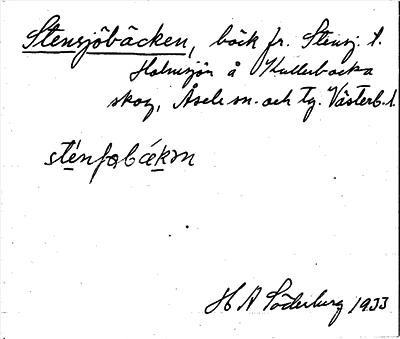 Stensjöbäcken, bäck fr. Stensj. t.
Holmsjön å Kullerbacka
skog, Åsele sn. och tg. Västerb. l.
sténʃəbækən
H A Söderberg 1933